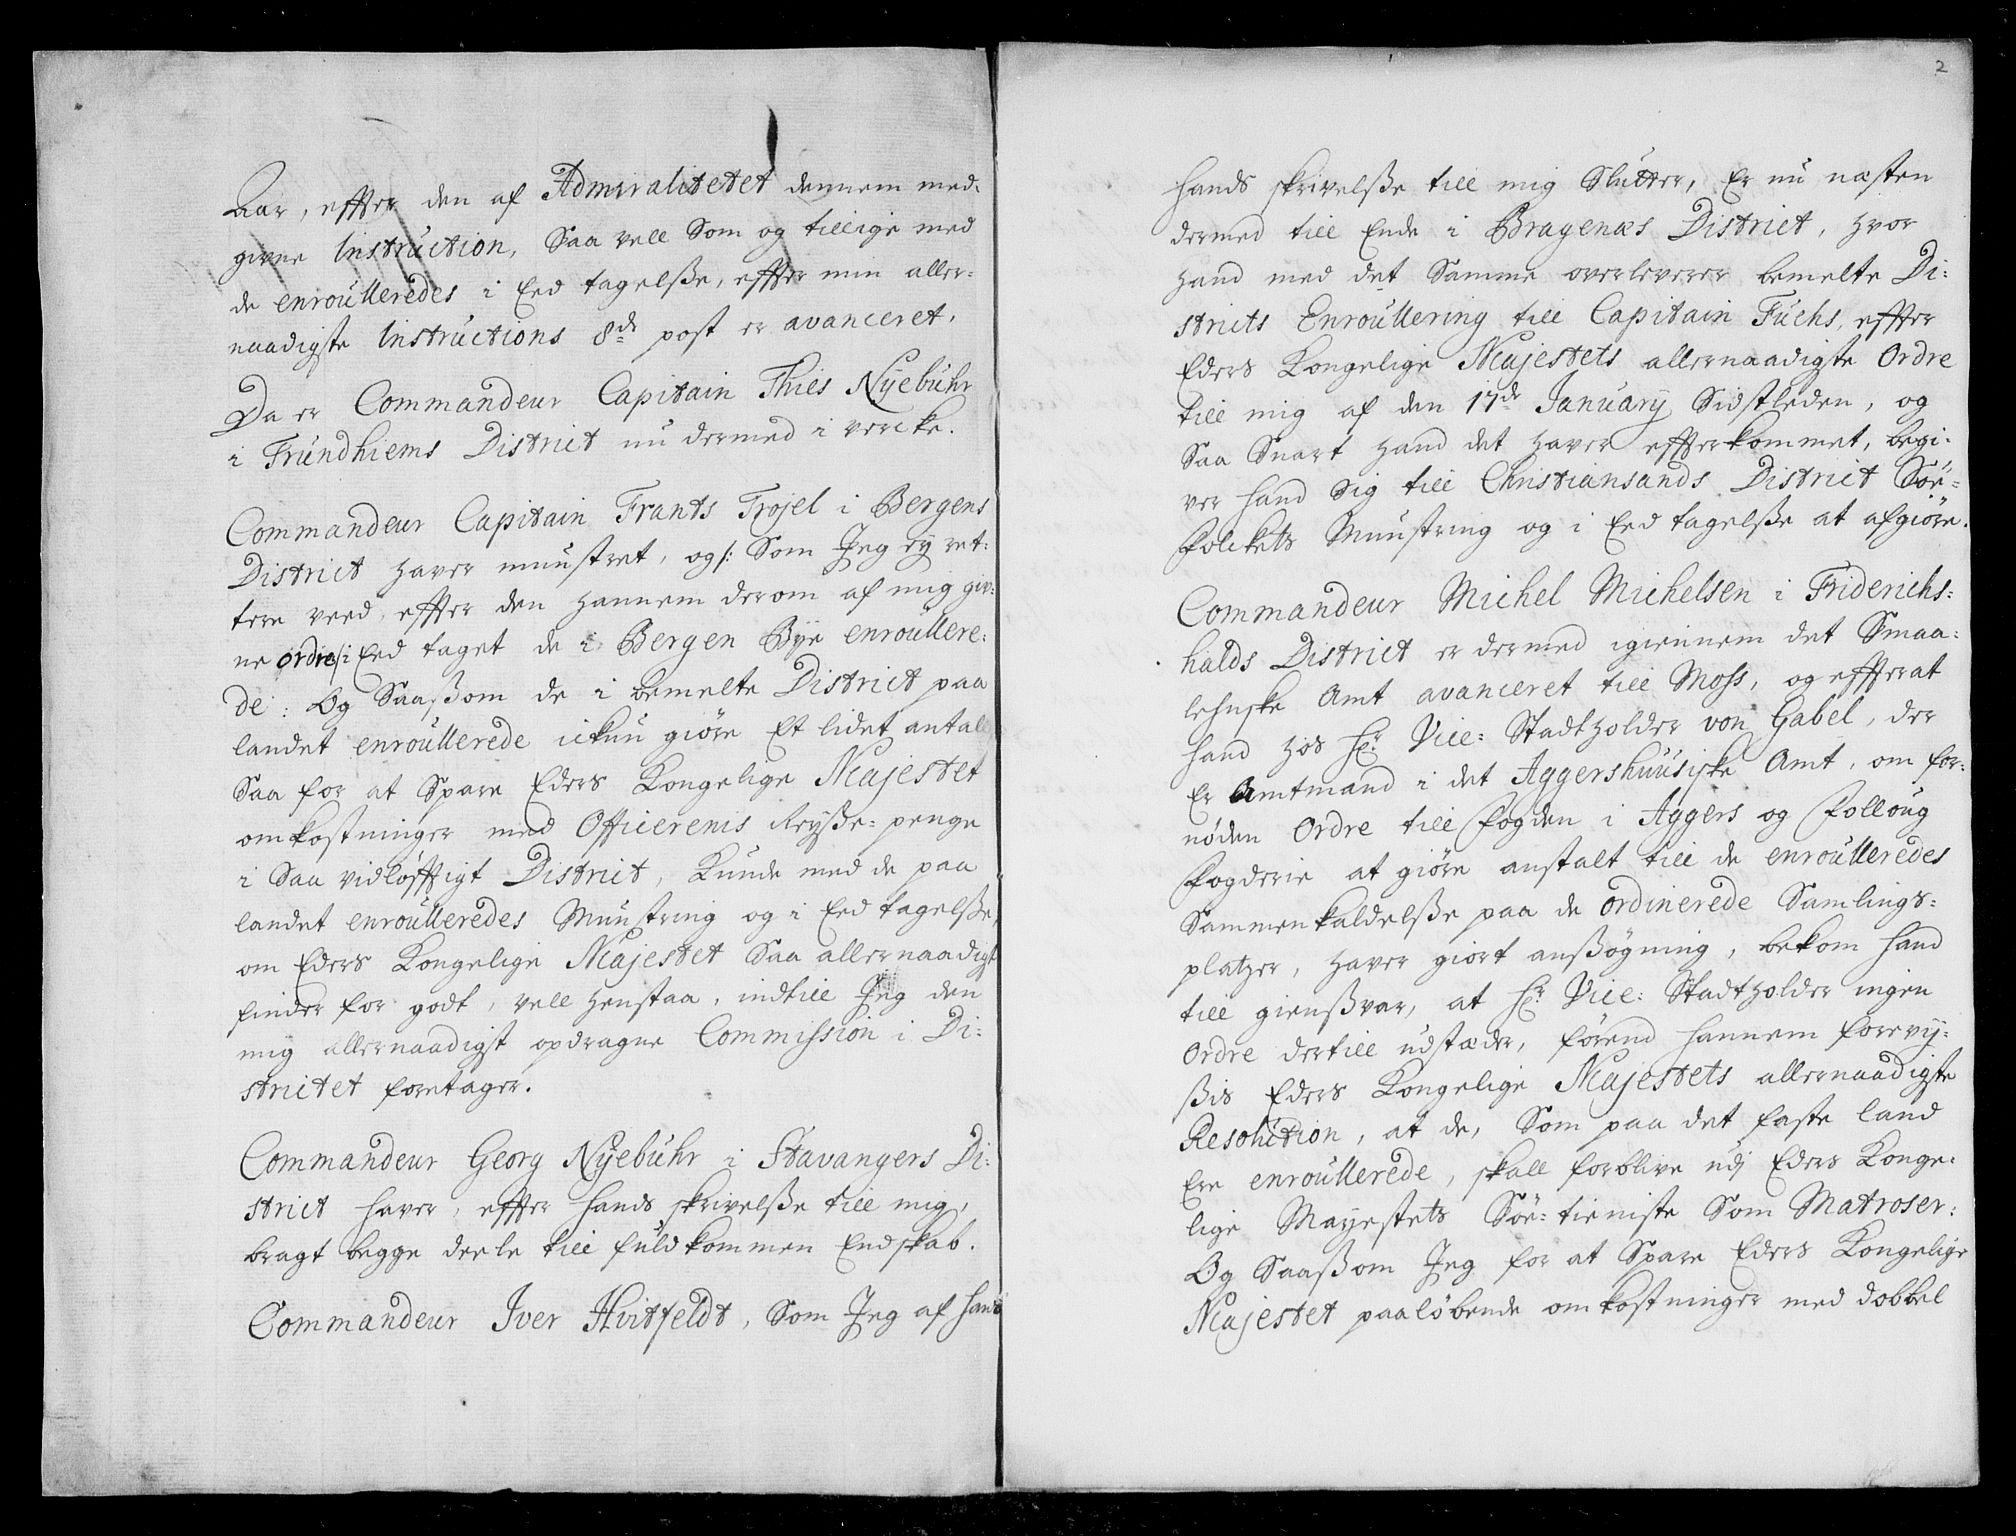 Aar, effter den af Admiralitetet dennem med-
givne Instruction, Saa vell Som og tillige med
de enroulleredes i Eed tagelsße, effter min aller-
naadigste Instructions 8de post er avanceret.
Da er Commandeur Capitain Thies Nÿebuhr
i Trundhiems District nu dermed i vercke.
Commandeur Capitain Frants Trojel i Bergens
District haver munstret, og /: Som Jeg eÿ ret-
tere veed, effter den hannem derom af mig giv-
ne ordre /: i Eed taget de i Bergen Bÿe enroullere-
de: Og Saaßom de i bemelte District paa
landet enroullerede ickun giøre Et lidet antall
Saa for at Spare Eders Kongelige Majestet
omkostninger med Officerenis Reÿße-penge
i Saa vidløfftigt District, Kunde med de paa
landet enroulleredes Munstring og i Eed tagelsße,
om Eders Kongelige Majestet Saa allernaadigst
finder for godt, vell henstaa, indtill Jeg den
mig allernaadigst opdragne Commission i Di-
strictet foretager.
Commandeur Georg Nÿebuhr i Stavangers Di-
strict haver, effter hands skrivelsße till mig,
bragt begge deele till fuldkommen Endskab.
Commandeur Iver Hvitfeldt, Som Jeg af hans
2
hands skrivelsße till mig Slutter, Er nu næsten
dermed till Ende i Bragenæs District, hvor
hand med det Samme overleverer bemelte Di-
stricts Enroullering till Capitain Fuchs, effter
Eders Kongelige Majestets allernaadigste Ordre
till mig af den 17de Januarÿ Sidstleden, og
Saa Snart hand det haver effterkommet, begi-
ver hand Sig till Christiansands District Söe-
folckets Munstring og i Eed tagelsße at afgiöre.
Commandeur Michel Michelsen i Friderichs-
halds District er dermed igiennem det Smaa-
lehnske Amt avanceret till Moss, og effter at
hand hos Hr Vice-Stadtholder von Gabel, der
Er Amtmand i det Aggershuusiske Amt, om for-
nöden Ordre till fogden i Aggers og Folloug
fogderie at giöre anstalt till de enroulleredes
Sammenkaldelsße paa de ordinerede Samlings-
platzer, haver giort ansßögning, bekom hand
till giensßvar, at Hr Vice-Stadtholder ingen
Ordre dertill udstæder, förend hannem forevÿ-
ßis Eders Kongelige Majestets allernaadigste
Resolution, at de, Som paa det faste land
Ere enroullerede, skall forblive udj Eders Konge-
lige Mayestets Söe-tieniste Som Matroser:
Og Saaßom Jeg for at Spare Eders Kongelige
Majestet paalöbende omkostninger med dobbel